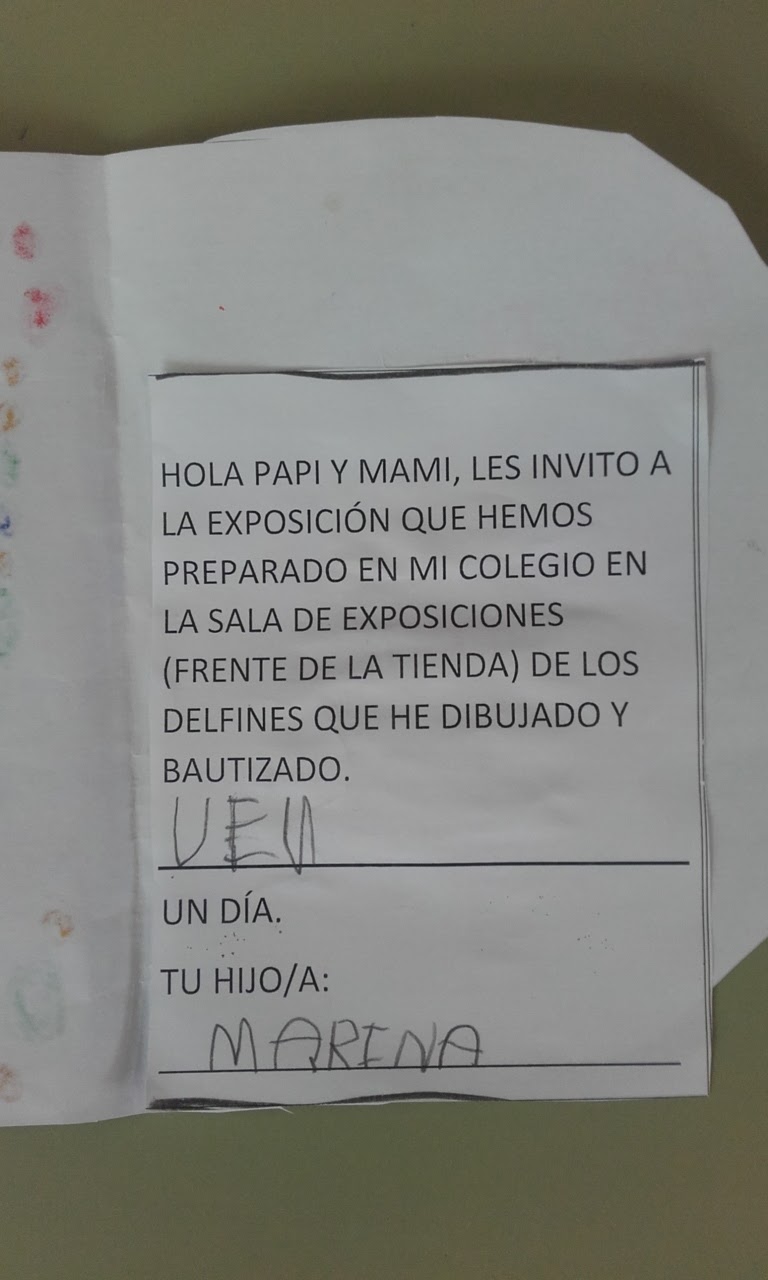 HOLA PAPI Y MAMI, LES INVITO A
LA EXPOSICIÓN QUE HEMOS
PREPARADO EN MI COLEGIO EN
LA SALA DE EXPOSICIONES
(FRENTE DE LA TIENDA) DE LOS
DELFINES QUE HE DIBUJADO Y
BAUTIZADO.
VEN
UN DÍA.
TU HIJO/A:
MARINA